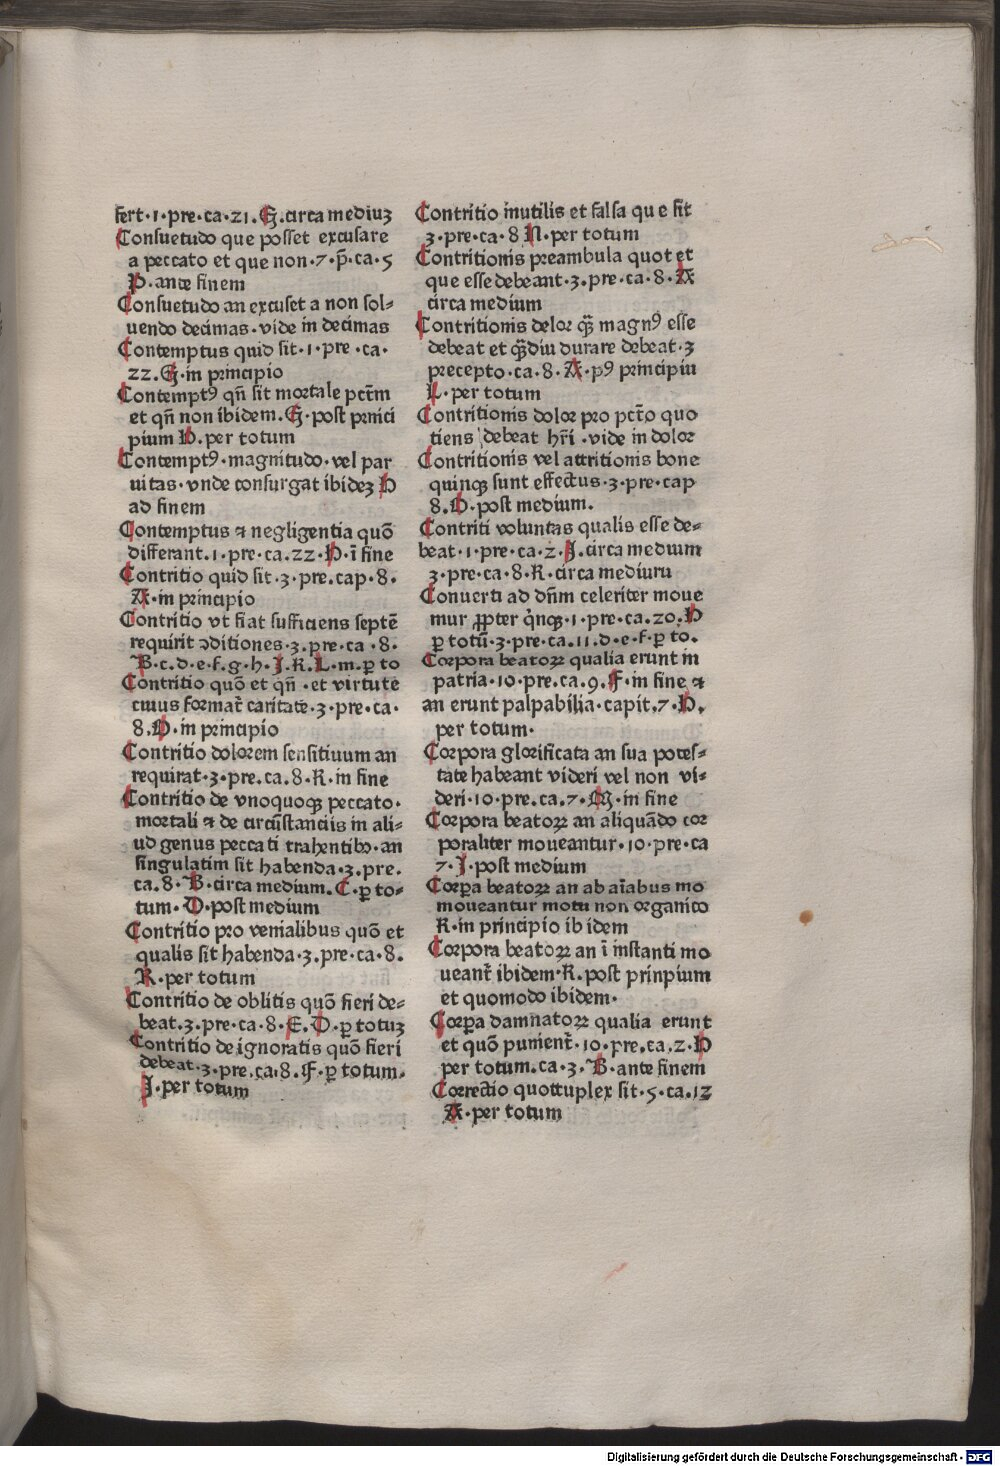 fert·1·pre·ca·21·G·circa mediuʒ
Consuetudo que posset excusare
a peccato et que non·7·p̄·ca·5
P·ante finem
Consuetudo an excuset a non sol⸗
uendo decimas·vide in decimas
Contemptus quid sit·1·pre·ca·
22·G·in principio
Contemptꝰ qn̄ sit mortale pctm̄
et qn̄ non ibidem·G·post princi
pium H·per totum
Contemptꝰ·magnitudo·vel par
uitas·vnde consurgat ibideʒ H
ad finem
Contemptus ⁊ negligentia quō
differant·1·pre·ca·22·H·ī fine
Contritio quid sit·3·pre·cap·8·
A·in principio
Contritio vt fiat sufficiens septē
requirit ↄditiones·3·pre·ca·8·
B·c·d·e·f·g·h·I·K·L·m·ꝑ to
Contritio quō et qn̄·et virtute
cuius format̄ caritate·3·pre·ca·
8·D·in principio
Contritio dolorem sensitiuum an
requirat·3·pre·ca·8·K·in fine
Contritio de vnoquoqꝫ peccato·
mortali ⁊ de circūstanciis in ali⸗
ud genus peccati trahentibꝰ·an
singulatim sit habenda·3·pre·
ca·8·B·circa medium·C·ꝑ to⸗
tum·D·post medium
Contritio pro venialibus quō et
qualis sit habenda·3·pre·ca·8·
K·per totum
Contritio de oblitis quō fieri de⸗
beat·3·pre·ca·8·E·D·ꝑ totuʒ
Contritio de ignoratis quō fieri
debeat·3·pre·ca·8·F·ꝑ totum·
I·per totum
Contritio inutilis et falsa que sit
3·pre·ca·8 N·per totum
Contritionis preambula quot et
que esse debeant·3·pre·ca·8·A
circa medium
Contritionis delor qꝫ̄ magnꝰ esse
debeat et qꝫ̄diu durare debeat·3
precepto·ca·8·A·pꝰ principiu
L·per totum
Contritionis dolor pro pctō quo
tiens debeat hr̄i·vide in dolor
Contritionis vel attritionis bone
quinqꝫ sunt effectus·3·pre·cap
8·D·post medium·
Contriti voluntas qualis esse de⸗
beat·1·pre·ca·2·I·circa medium
3·pre·ca·8·K·circa mediuru
Conuerti ad dn̄m celeriter moue
mur ꝓpter qͥnqꝫ·1·pre·ca·20·H
ꝑ totū·3·pre·ca·11·d·e·f·ꝑ to·
Corpora beatoꝝ qualia erunt in
patria·10·pre·ca·9·F·in fine ⁊
an erunt palpabilia·capit·7·H·
per totum·
Corpora glorificata an sua potes⸗
tate habeant videri vel non vi⸗
deri·10·pre·ca·7·M·in fine
Corpora beatoꝝ an aliquādo cor
poraliter moueantur·10·pre·ca
7·I·post medium
Corꝑa beatoꝝ an ab aīabus mo
moueantur motu non organico
K·in principio ib idem
Corpora beatoꝝ an ī instanti mo
ueant̄ ibidem·K·post prinpium
et quomodo ibidem·
Corꝑa damnatoꝝ qualia erunt
et quō punient̄·10·pre·ca·2·H
per totum·ca·3·B·ante finem
Correctio quottuplex sit·5·ca·12
A·per totum
Digitalisierung gefördert durch die Deutsche Forschungsgemeinschaft · DFG